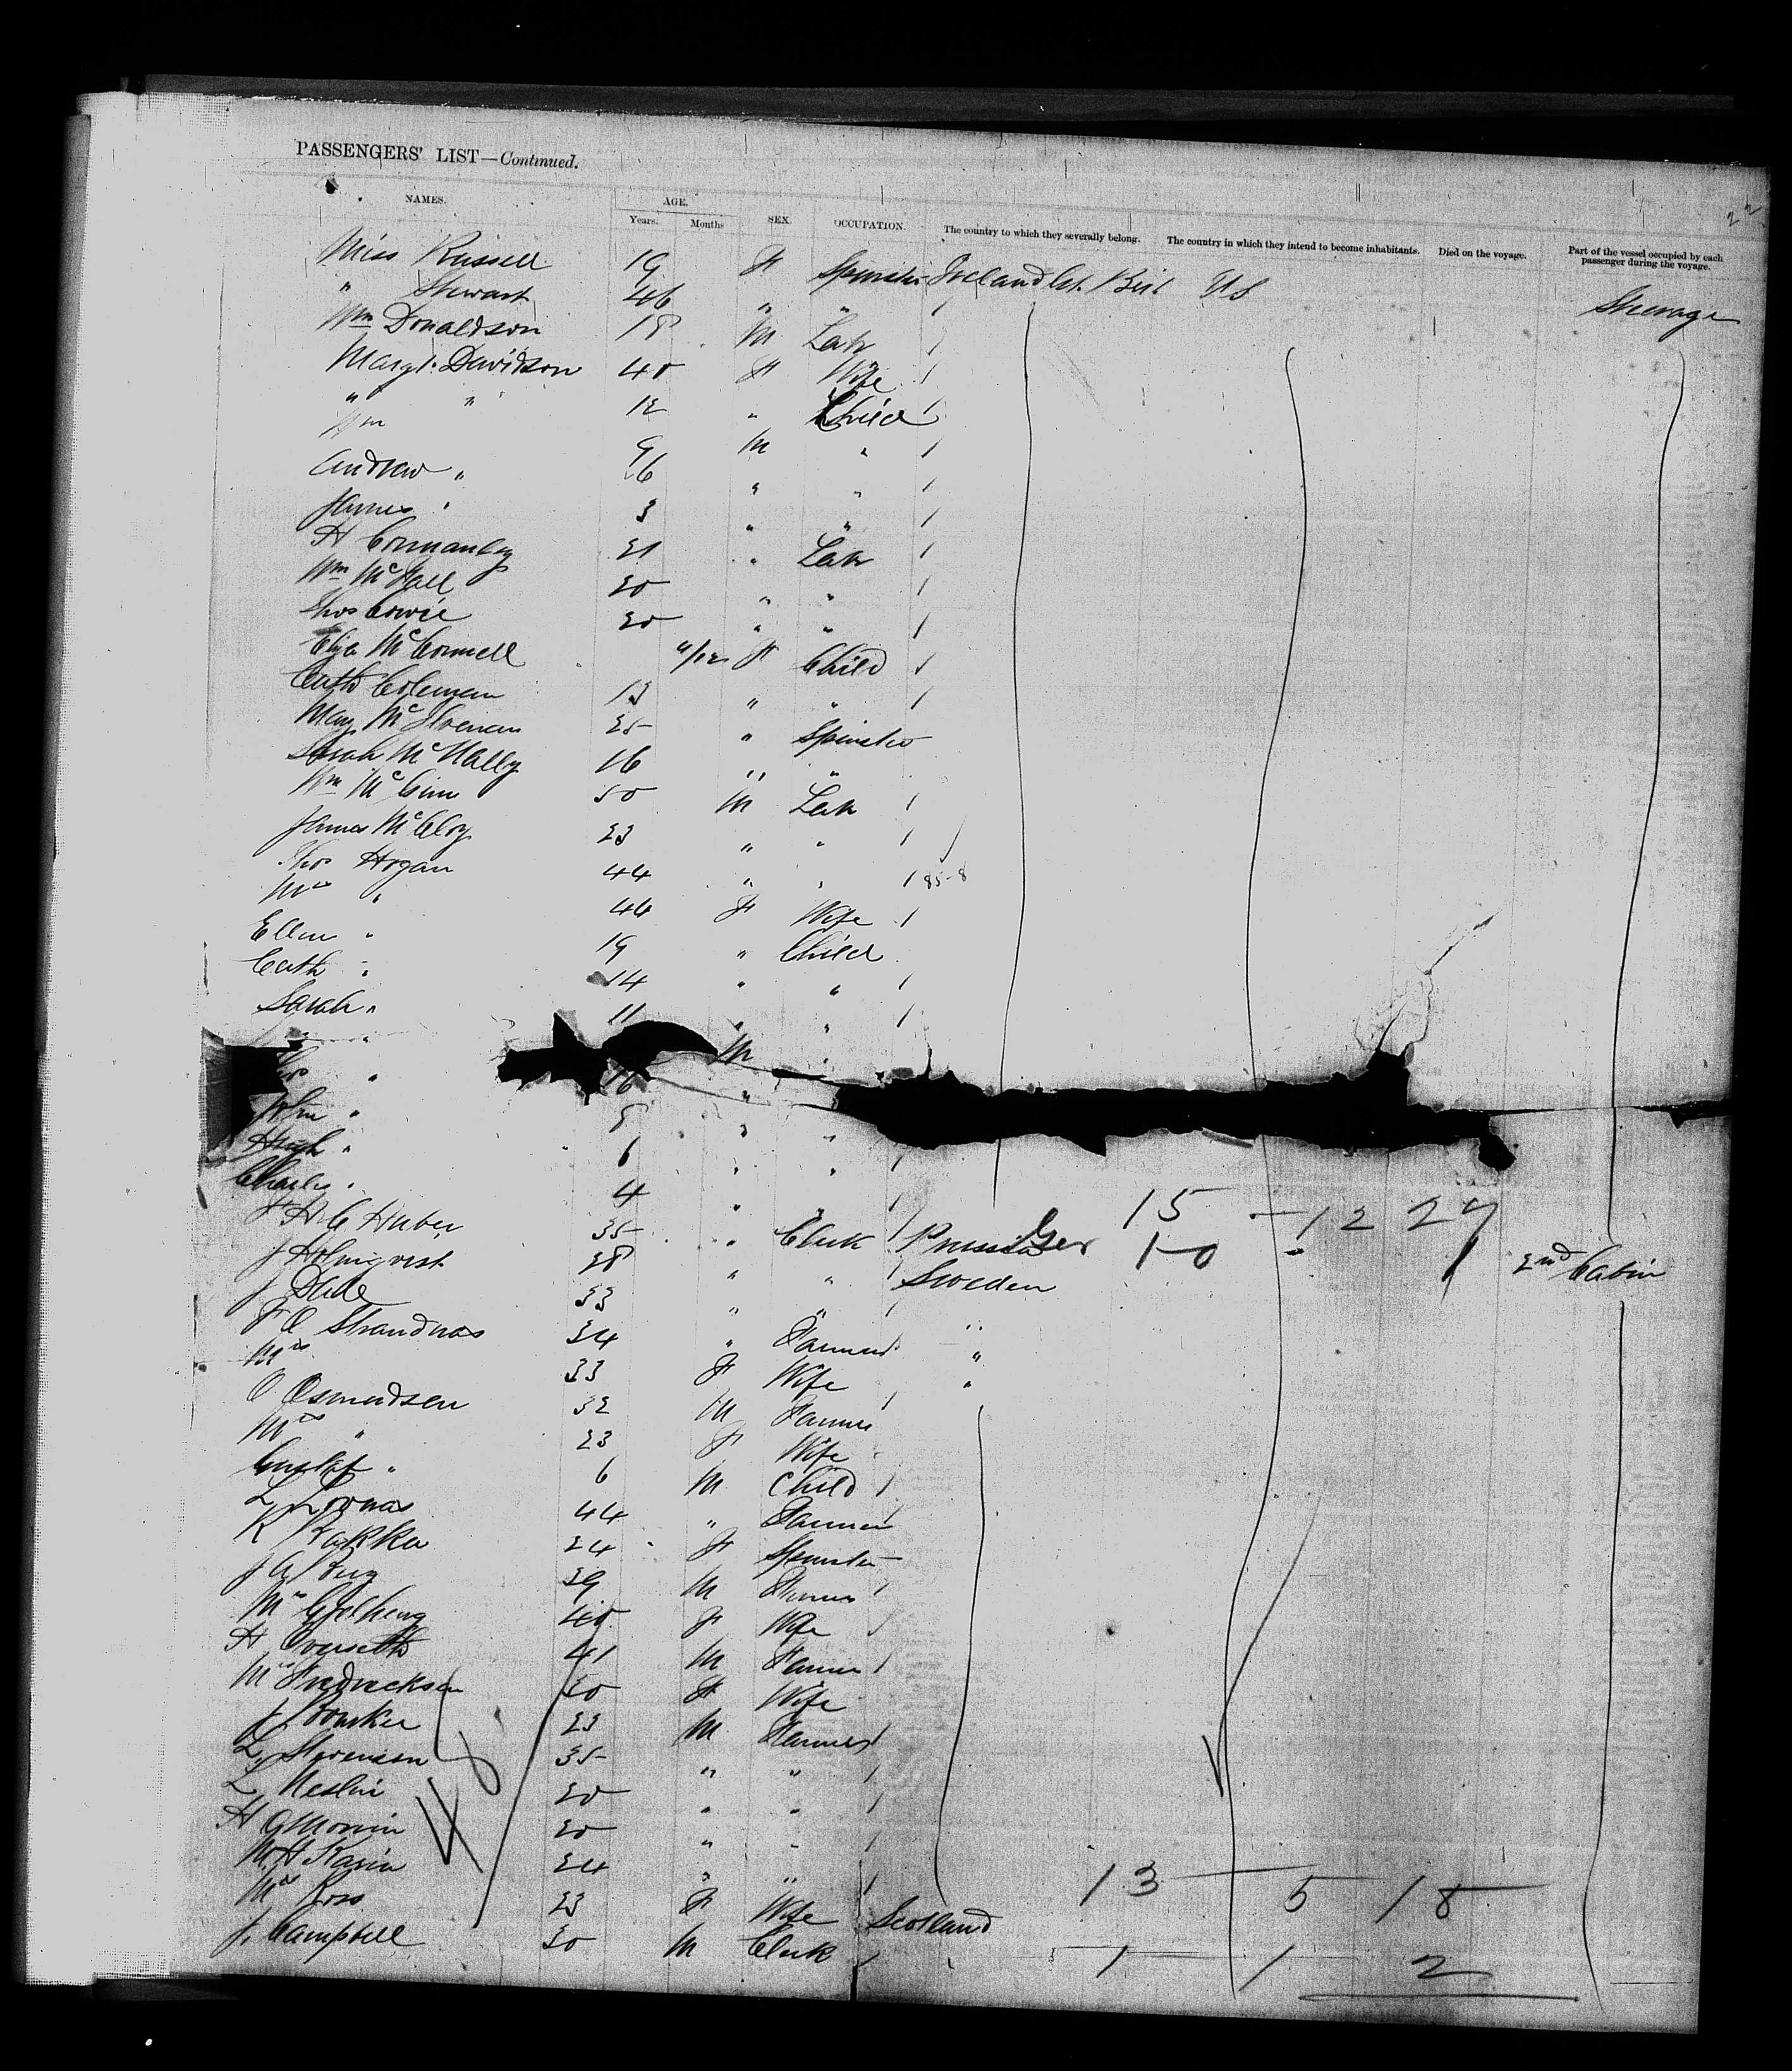 22
PASSENGERS' LIST—Continued.
NAMES. AGE. Years. Months SEX. OCCUPATION. The country to which they severally belong. The country in which they intend to become inhabitants. Died on the voyage. Part of the vessel occupied by each passenger during the voyage.
Miss Russell 19 F Spinster Ireland Gt. Brit US Steerage
" Stewart 46 " "
Wm Donaldson 18 M Lab
Margt. Davidson 40 F Wife
" " 12 " Child
Wm 9 M "
Andrew " 6 " "
James " 3 " "
H 21 " Lab
Wm McFall 20 " "
Thos Cowie 20 " "
Eliza McConnell 11/12 F Child
Cath Coleman 13 " "
Mary 25 " Spinster
Sarah McNally 16 " "
Wm McGinn 50 M Lab
James McCloy 23 " "
Thos Hogan 44 " " 85-8
Mrs " 44 F Wife
Ellen " 19 " Child
Cath " 14 " "
Sarah " 11 " "
" M "
" 16 "
John " 8 " "
Hugh " 6 " "
Charles " 4 " " 15 - 12 27
H C Huber 35 " Clerk Prussia Ger 1-0 - 1 2nd Cabin
J Holmqvist 28 " " Sweden
J Dahl 33 " " "
F O Strandnas 34 " Farmer "
Mrs 33 F Wife "
O Osmudsen 32 M Farmer
Mrs " 23 F Wife
Gustaf " 6 M Child
L 44 " Farmer
K Kakka 24 F Spinster
J A 39 M Farmer
Mrs 40 F Wife
H 41 M Farmer
Mrs Fredricksen 20 F Wife
J 23 M Farmer
L Sorenson 35 " "
L Neslin 20 " "
H G 20 " "
M. H Karin 24 " " 13 5 18
Mrs Ross 23 F Wife Scotland
J. Campbell 30 M Clerk 1 1 2